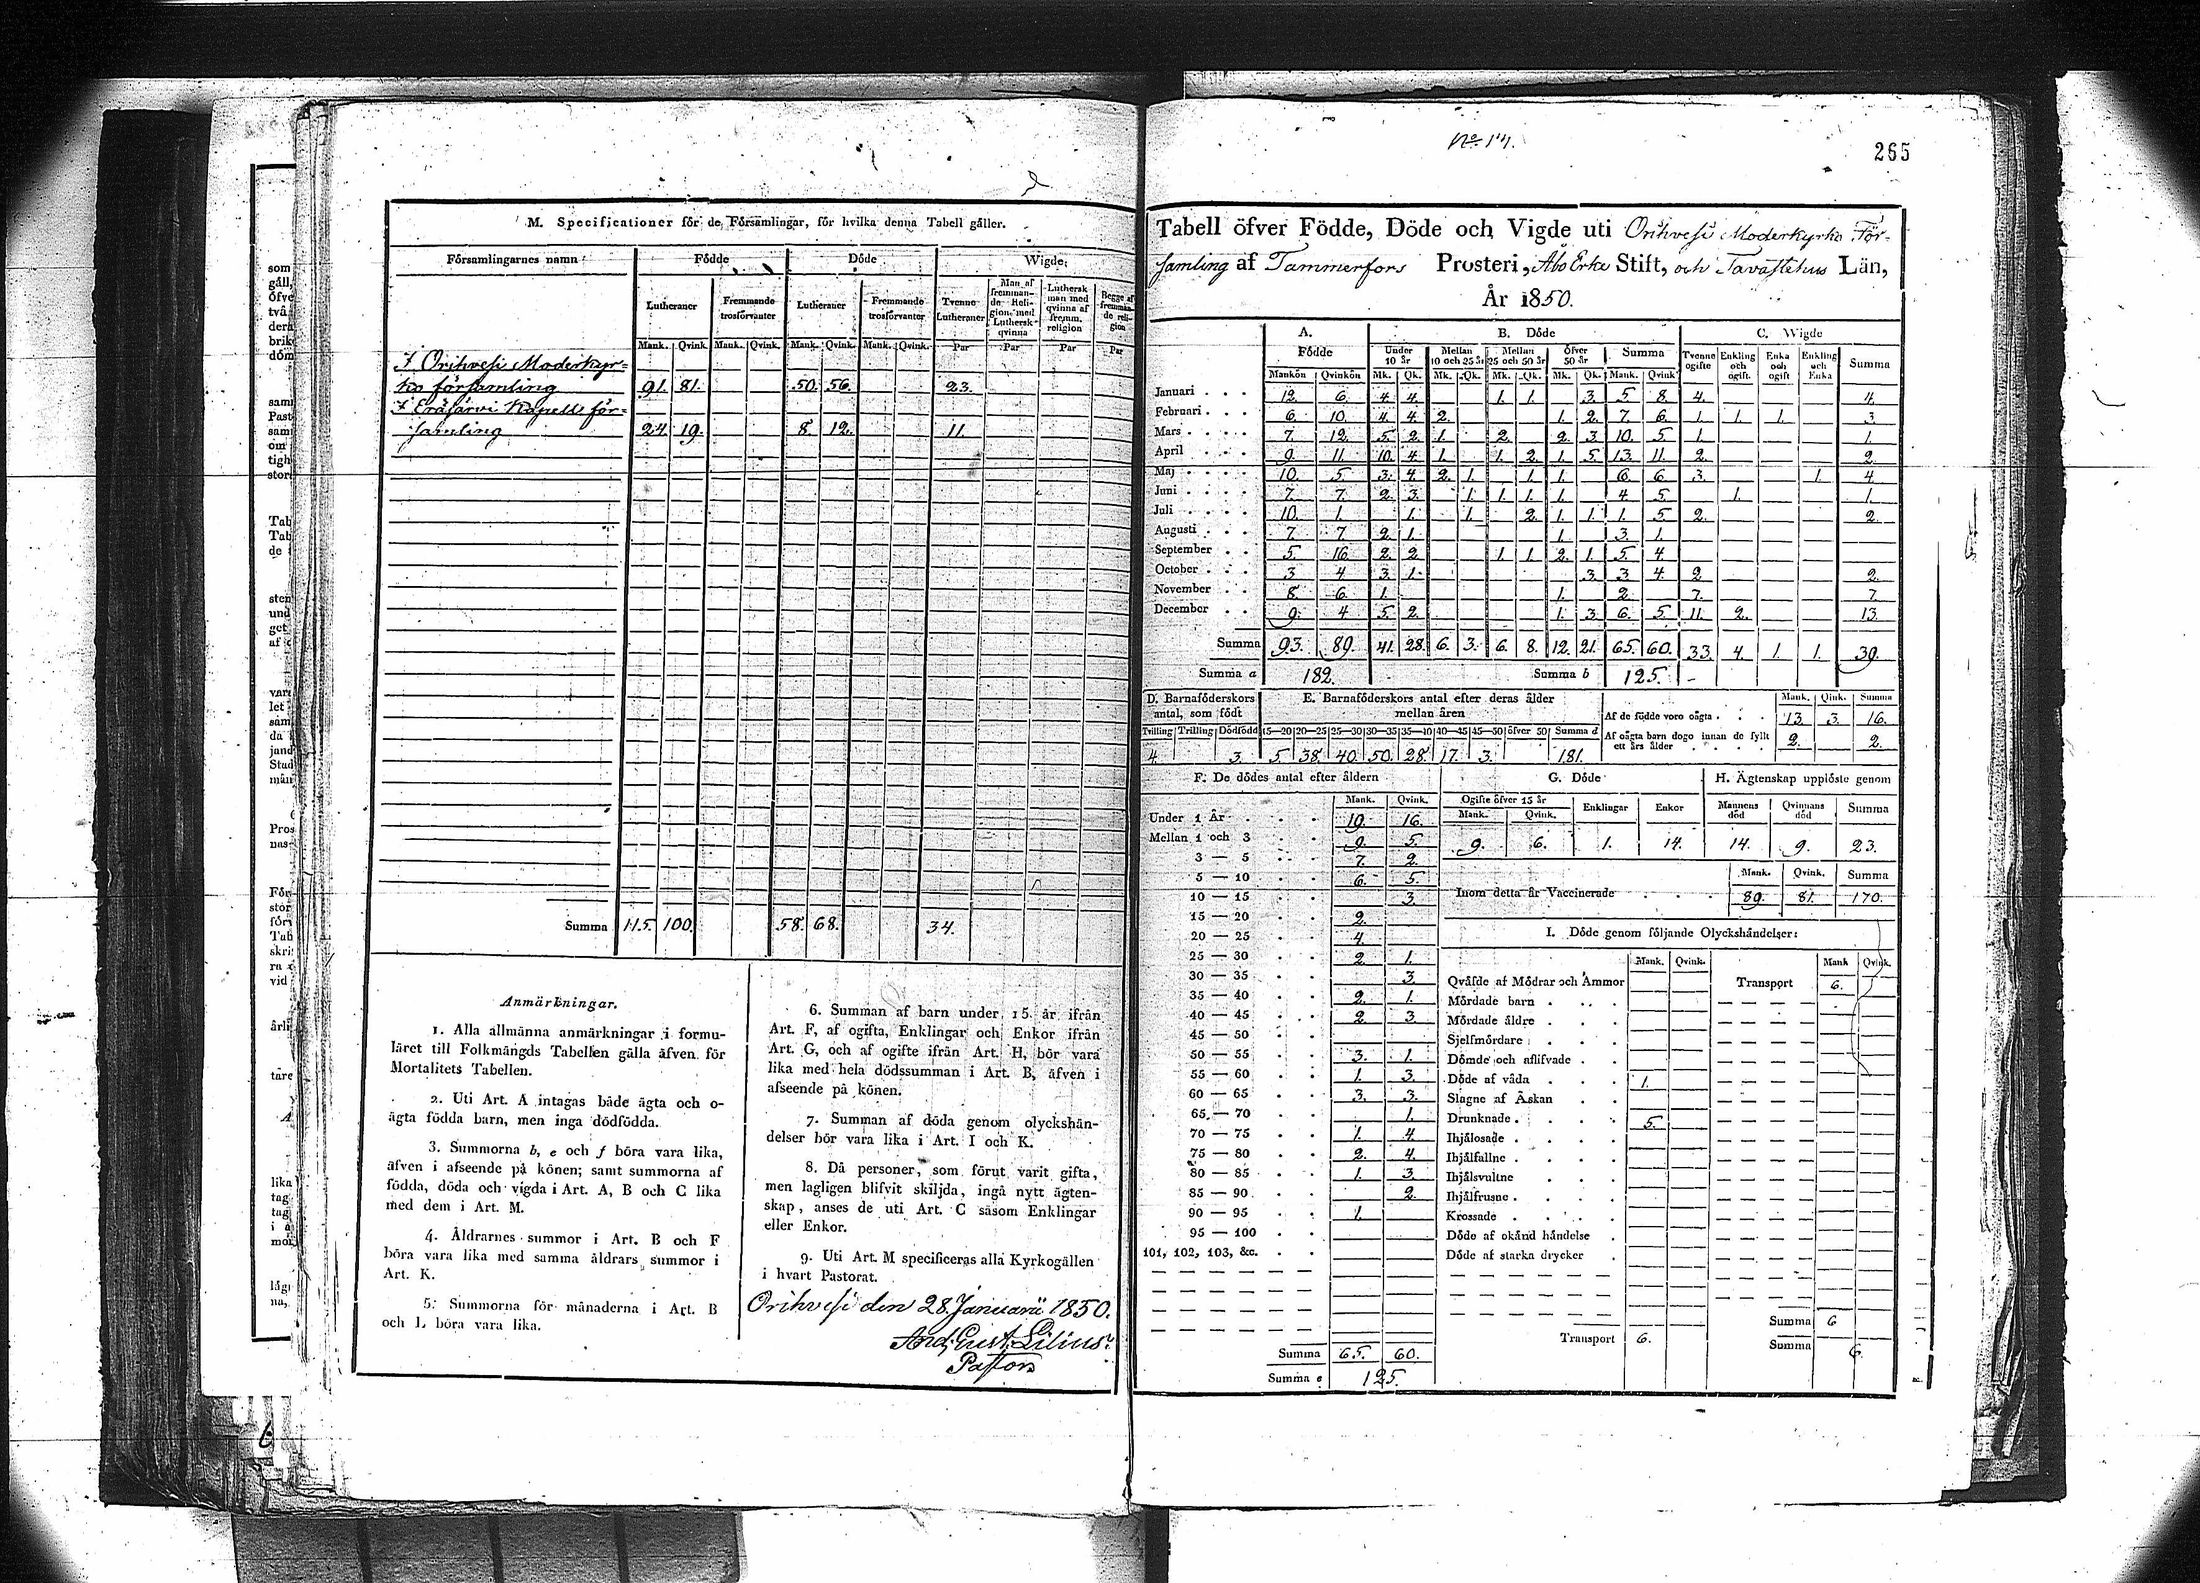 M. Specificationer för de Församlingar, för hvilka denna Tabell gäller.
Församlingarnes namn Födde Döde Wigde
Lutheraner Fremmande trosförvanter Lutheraner Fremmande trosförvanter Tvenne Lutheraner Man af fremmande Religion med Luthersk qvinna Luthersk man med qvinna af fremm. religion Begge af fremmande religion
Mank. Qvink. Mank. Qvink. Mank. Qvink. Mank. Qvink. Par Par Par Par
I Orihvesi Moderkyr=
ko församling 91. 81. 50. 56. 23.
I Eräjärvi Kapells för=
samling 24. 19. 8. 12. 11.
Summa 115. 100. 58. 68. 34.
Anmärkningar.
1. Alla allmänna anmärkningar i formu-
läret till Folkmängds Tabellen gälla äfven för
Mortalitets Tabellen.
2. Uti Art. A intagas både ägta och o-
ägta födda barn, men inga dödfödda.
3. Summorna b, e och f böra vara lika,
äfven i afseende på könen; samt summorna af
födda, döda och vigda i Art. A, B och C lika
med dem i Art. M.
4. Åldrarnes summor i Art. B och F
böra vara lika med samma åldrars summor i
Art. K.
5. Summorna för månaderna i Art. B
och L böra vara lika.
6. Summan af barn under 15 år ifrån
Art. F, af ogifta, Enklingar och Enkor ifrån
Art. G, och af ogifte ifrån Art. H, bör vara
lika med hela dödssumman i Art. B, äfven i
afseende på könen.
7. Summan af döda genom olyckshän-
delser bör vara lika i Art. I och K.
8. Då personer, som förut varit gifta,
men lagligen blifvit skiljda, ingå nytt ägten-
skap, anses de uti Art. C såsom Enklingar
eller Enkor.
9. Uti Art. M specificeras alla Kyrkogällen
i hvart Pastorat.
Orihvesi den 28 Januarii 1850.
And. Gust. Lilius.
Pastor
No 14.
265
Tabell öfver Födde, Döde och Vigde uti Orihvesi Moderkyrko För-
samling af Tammerfors Prosteri, Åbo Erke Stift, och Tavastehus Län,
År 1850.
A. B. Döde C. Wigde
Födde Under 10 år Mellan 10 och 25 år Mellan 25 och 50 år Öfver 50 år Summa Tvenne ogifte Enkling och ogift. Enka och ogift Enkling och Enka Summa
Mankön Qvinkön Mk. Qk. Mk. Qk. Mk. Qk. Mk. Qk. Mank. Qvink
Januari 12. 6. 4 4. 1. 1. 3. 5 8. 4. 4.
Februari 6 10. 4 4 2. 1. 2. 7. 6. 1. 1. 1. 3.
Mars 7. 12. 5 2. 1. 2. 2. 3 10. 5. 1. 1.
April 9. 11. 10. 4 1. 1. 2. 1. 5. 13. 11. 2. 2.
Maj 10. 5. 3. 4. 2. 1. 1. 1. 6. 6. 3. 1. 4
Juni 7. 7. 2 3. 1. 1. 1. 1. 4. 5. 1. 1.
Juli 10. 1. 1. 1. 2. 1. 1. 1. 5. 2. 2.
Augusti 7. 7. 2. 1. 1. 3. 1.
September 5. 16. 2. 2. 1 1. 2. 1. 5. 4.
October 3 4. 3. 1. 3. 3 4. 2. 2.
November 8. 6. 1. 1. 2. 7. 7
December 9. 4 5. 2. 1. 3. 6. 5. 11. 2. 13.
Summa 93. 89. 41. 28. 6. 3. 6. 8. 12. 21. 65. 60. 33. 4. 1. 1. 39.
Summa a 182. Summa b 125.
D. Barnaföderskors antal, som födt
Tvilling Trilling Dödfödd
4. 3.
E. Barnaföderskors antal efter deras ålder
mellan åren
15—20 20—25 25—30 30—35 35—40 40—45 45—50 öfver 50 Summa d
5. 38. 40. 50. 28. 17. 3. 181.
Mank. Qink. Summa
Af de födde voro oägta 13. 3. 16.
Af oägta barn dogo innan de fyllt
ett års ålder 2. 2.
F. De dödes antal efter åldern
Mank. Qvink.
Under 1 År 19. 16.
Mellan 1 och 3 9. 5.
3 — 5 7. 2.
5 — 10 6. 5.
10 — 15 3.
15 — 20 2.
20 — 25 4.
25 — 30 2. 1.
30 — 35 3.
35 — 40 2. 1.
40 — 45 2. 3
45 — 50
50 — 55 3. 1.
55 — 60 1. 3.
60 — 65 3. 3.
65 — 70 1.
70 — 75 1. 4.
75 — 80 2. 4.
80 — 85 1. 3.
85 — 90 2.
90 — 95 1.
95 — 100
101, 102, 103, &c.
Summa 65. 60.
Summa e 125.
G. Döde
Ogifte öfver 15 år Enklingar Enkor
Mank. Qvink.
9. 6. 1. 14.
H. Ägtenskap upplöste genom
Mannens död Qvinnans död Summa
14. 9. 23.
Mank. Qvink. Summa
Inom detta år Vaccinerade 89. 81. 170.
I. Döde genom följande Olyckshändelser:
Mank. Qvink. Mank Qvink.
Qväfde af Mödrar och Ammor Transport 6.
Mördade barn
Mördade äldre
Sjelfmördare
Dömde och aflifvade
Döde af våda 1.
Slagne af Åskan
Drunknade 5.
Ihjälosade
Ihjälfallne
Ihjälsvultne
Ihjälfrusne
Krossade
Döde af okänd händelse
Döde af starka drycker
Transport 6.
Summa 6
Summa 6.